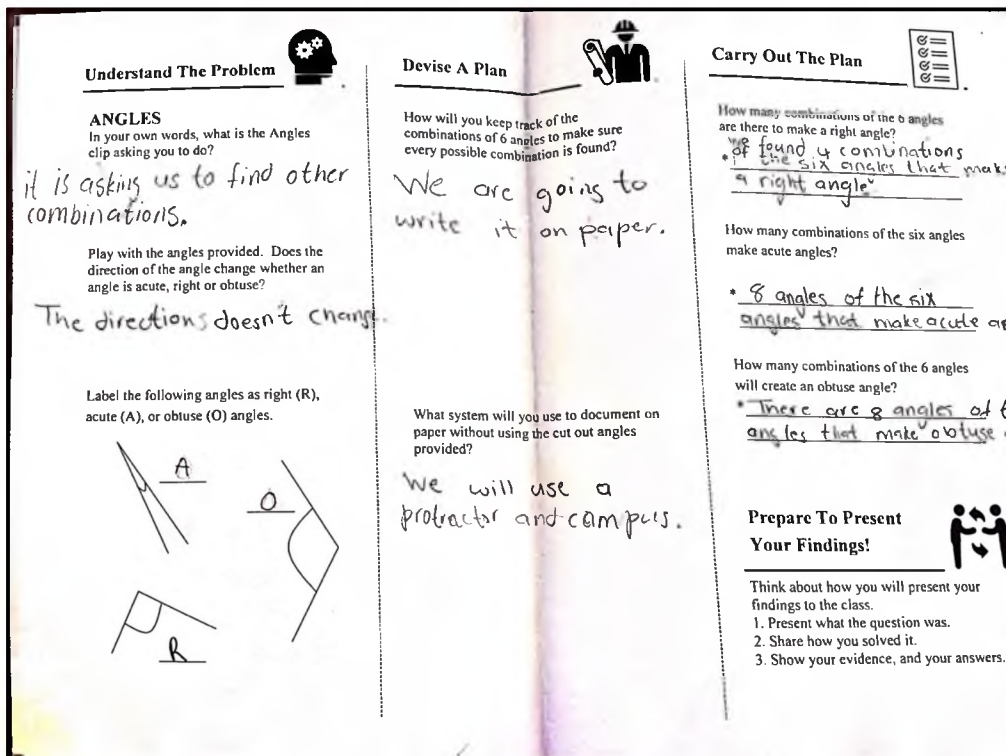 Understand The Problem
ANGLES
In your own words, what is the Angles
clip asking you to do?
it is asking us to find other
combinations.
Play with the angles provided. Does the
direction of the angle change whether an
angle is acute, right or obtuse?
The directions doesn't change.
Label the following angles as right (R),
acute (A), or obtuse (O) angles.
A
O
R
Devise A Plan
How will you keep track of the
combinations of 6 angles to make sure
every possible combination is found?
We are going to
write it on paper.
What system will you use to document on
paper without using the cut out angles
provided?
We will use a
protractor and compuls.
Carry Out The Plan
How many combinations of the 6 angles
are there to make a right angle?
we found 4 combinations
of the six angles that mak
a right angle
How many combinations of the six angles
make acute angles?
* 8 angles of the six
angles that make acute
How many combinations of the 6 angles
will create an obtuse angle?
* There are 8 angles of
angles that make obtuse
Prepare To Present
Your Findings!
Think about how you will present your
findings to the class.
1. Present what the question was.
2. Share how you solved it.
3. Show your evidence, and your answers.